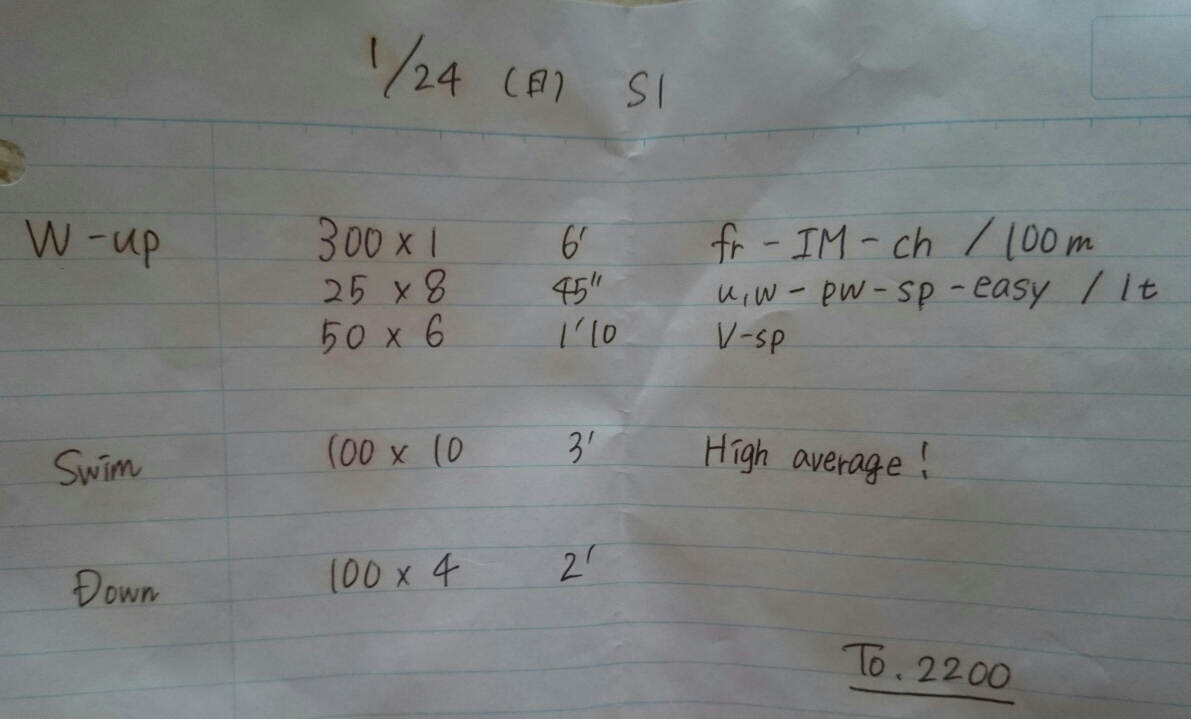 1/24 (日) S1
W-up 300 x 1 6' fr - IM - ch / 100m
25 x 8 45" u,w - pw - sp - easy / 1t
50 x 6 1'10 V-sp
Swim 100 x 10 3' High average!
Down 100 x 4 2'
To. 2200